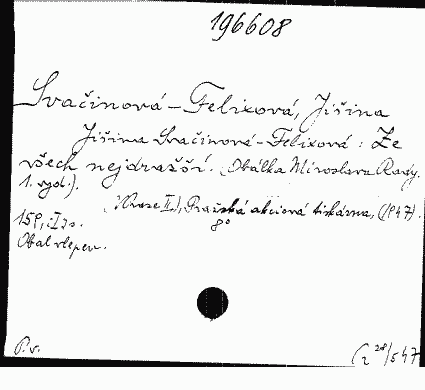 196608
Svačinová-Felixová, Jiřina
Jiřina Svačinová-Felixová: Ze
všech nejdražší. (Obálka Miroslava Rady.
1. vyd.).
(Praze II), Pražská akciová tiskárna, (1947).
159, I s. 8°
Obal vlepen.
P.v.
28/547